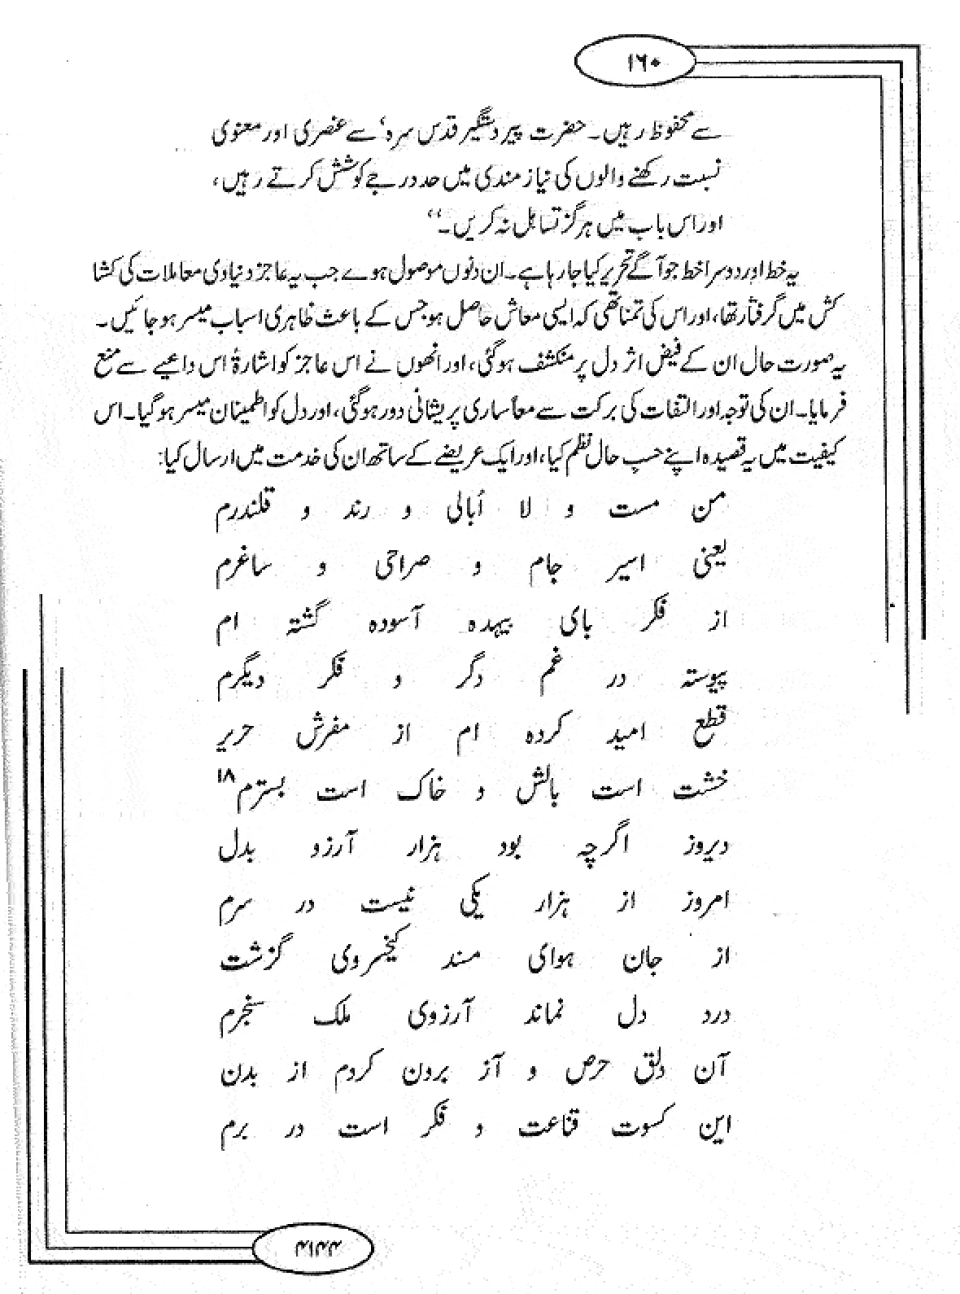 ۱۶۰
سے محفوظ رہیں۔ حضرت پیر دستگیر قدس سرہ' سے عنصری اور معنوی
نسبت رکھنے والوں کی نیاز مندی میں حد درجے کوشش کرتے رہیں،
اور اس باب میں ہرگز تساہل نہ کریں۔‘‘
یہ خط اور دوسرا خط جو آگے تحریر کیا جارہا ہے۔ ان دنوں موصول ہوے جب یہ عاجز دنیاوی معاملات کی کشا
کش میں گرفتار تھا، اور اس کی تمنا تھی کہ ایسی معاش حاصل ہو جس کے باعث ظاہری اسباب میسر ہو جائیں۔
یہ صورت حال ان کے فیض اثر دل پر منکشف ہوگئی، اور انھوں نے اس عاجز کو اشارۃً اس داعیے سے منع
فرمایا۔ ان کی توجہ اور التفات کی برکت سے معاً ساری پریشانی دور ہوگئی، اور دل کو اطمینان میسر ہوگیا۔ اس
کیفیت میں یہ قصیدہ اپنے حسبِ حال نظم کیا، اور ایک عریضے کے ساتھ ان کی خدمت میں ارسال کیا:
من مست و لا اُبالی و رند و قلندرم
یعنی اسیر جام و صراحی و ساغرم
از فکر ہای بیہدہ آسودہ گشتہ ام
پیوستہ در غم دگر و فکر دیگرم
قطع امید کردہ ام از مفرش حریر
خشت است بالش و خاک است بسترم ۱۸
دیروز اگرچہ بود ہزار آرزو بدل
امروز از ہزار یکی نیست در سرم
از جان ہوای مسند کیخسروی گزشت
درد دل نماند آرزوی ملک سنجرم
آن دلق حرص و آز برون کردم از بدن
این کسوت قناعت و فکر است در برم